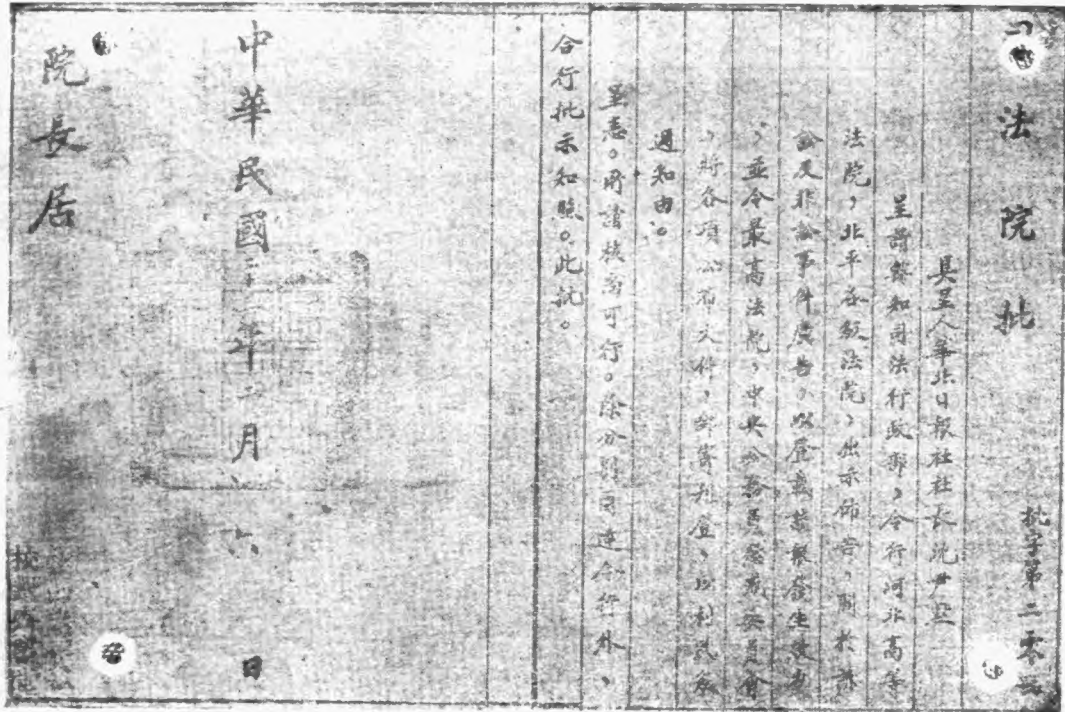 司法院批
批字第二零號
具呈人華北日報社社長沈尹
呈請飭知司法行政部,令行河北高等
法院,北平各級法院,出示佈告,關於訴
訟及非訟事件廣告,以登載報發生效力
,並令最高法院,中央公務員懲戒委員會
,將各項公布文件,郵寄刊登,以利民眾
週知由。
呈悉。所請核尚可行。除分別函達令行外,
合行批示知照。此批。
中華民國二十二年二月六日
院長居